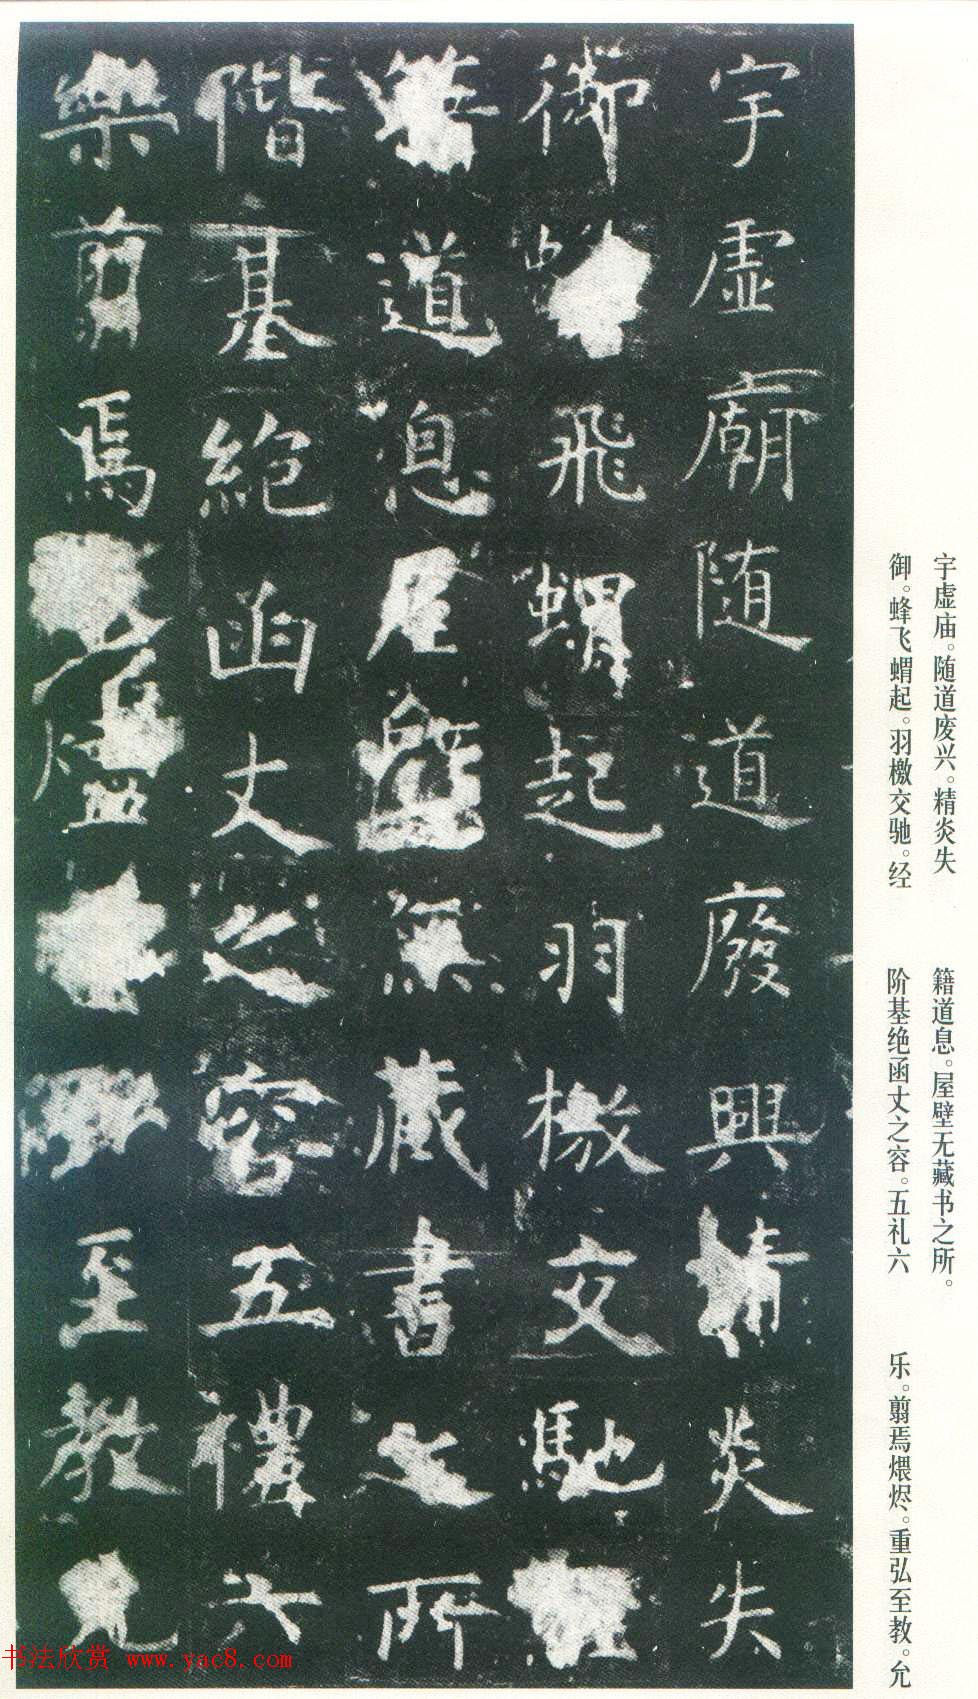 宇虛廟随道廢興精炎失
御蜂飛蝟起羽檄交馳
籍道息屋壁無藏書之所
階基絶函丈之容五禮六
樂剪焉燼至教允
宇虚庙。随道废兴。精炎失
御。蜂飞蝟起。羽檄交驰。经
籍道息。屋壁无藏书之所。
阶基绝函丈之容。五礼六
乐。翦焉煨烬。重弘至教。允
书法欣赏 www.yac8.com